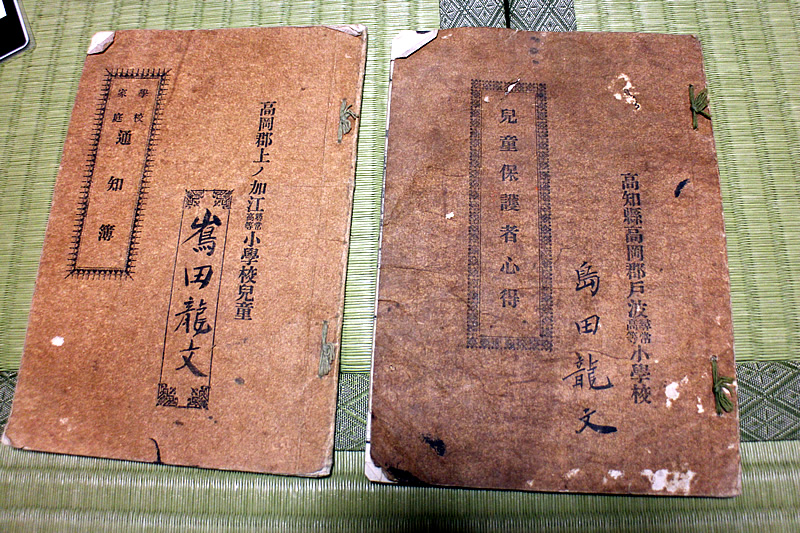 高知縣高岡郡戸波尋常高等小學校
島田龍文
兒童保護者心得
高岡郡上ノ加江尋常高等小學校兒童
嶌田龍文
學校家庭通知簿